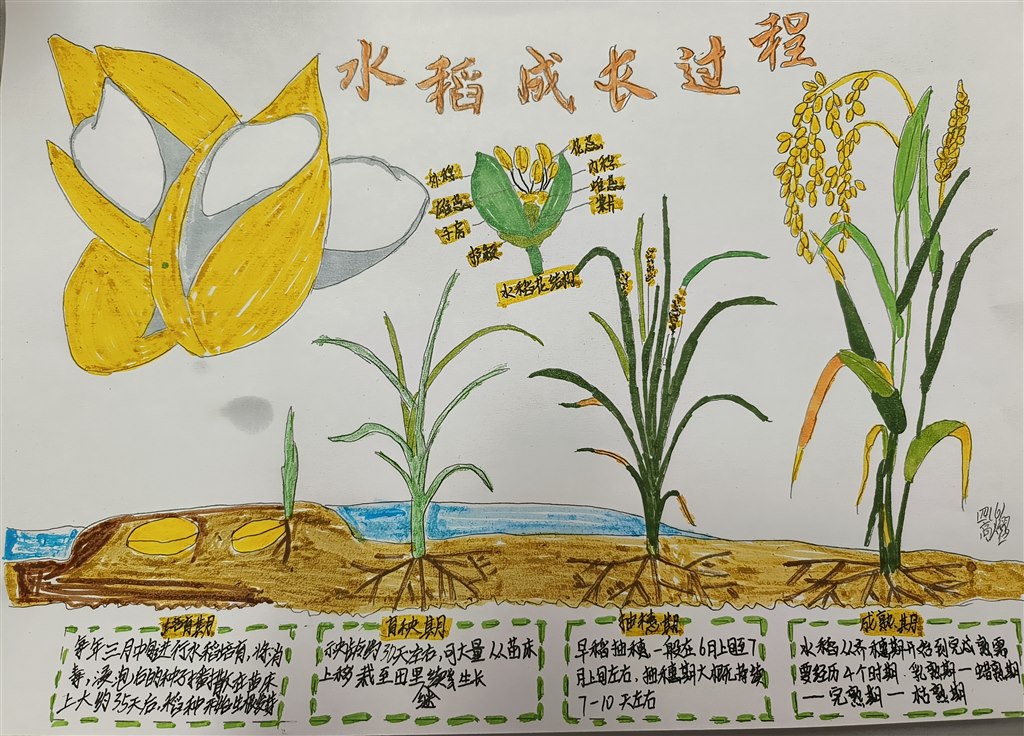 水稻成长过程
花药
外稃
内稃
雌蕊
浆片
子房
护颖
水稻花结构
四(6)
种育期
每年三月中旬进行水稻培育，将消
毒，浸泡后的种子播散在苗床
上大约35天后，稻种
育秧期
秧苗约30天左右，可大量从苗床
上移栽至田里继续生长
抽穗期
早稻抽穗一般在6月上旬至7
月上旬左右，抽穗期大概需持续
7-10天左右
成熟期
水稻从齐穗期开始到完成熟需
要经历4个时期 乳熟期一蜡熟期
一完熟期一枯熟期